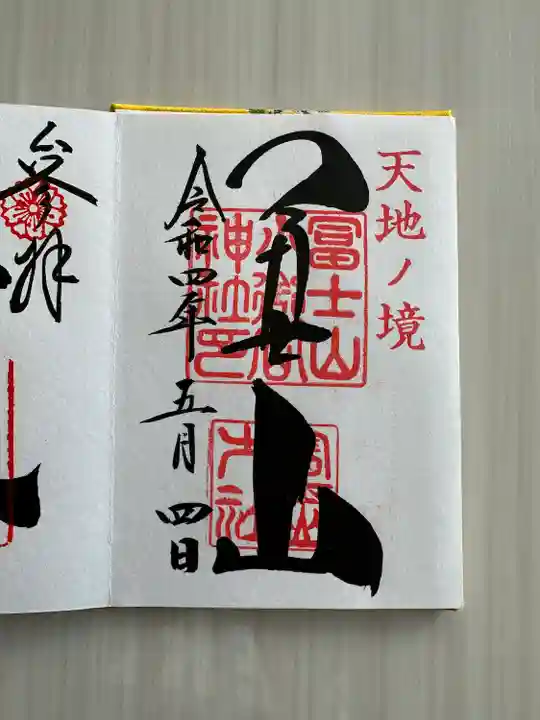 天地ノ境
冨士山
富士山
小御嶽
神社印
令和四年 五月 四日
参拝